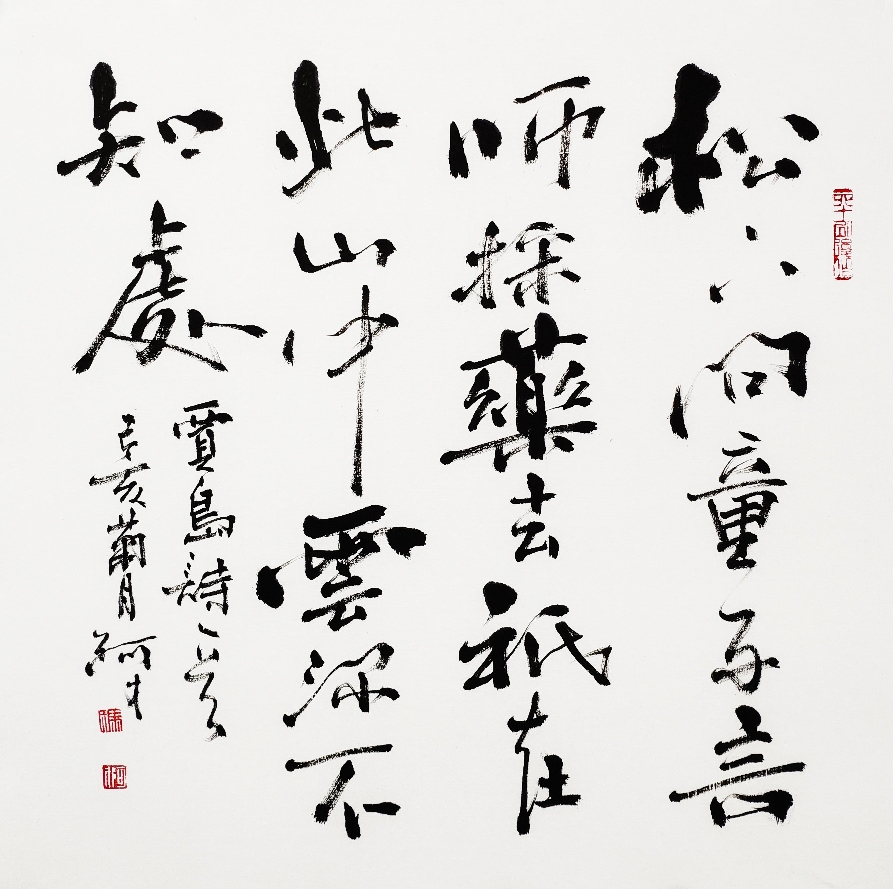 松下問童子言
師採藥去祇在
此山中雲深不
知處
賈島詩一首
己亥 月